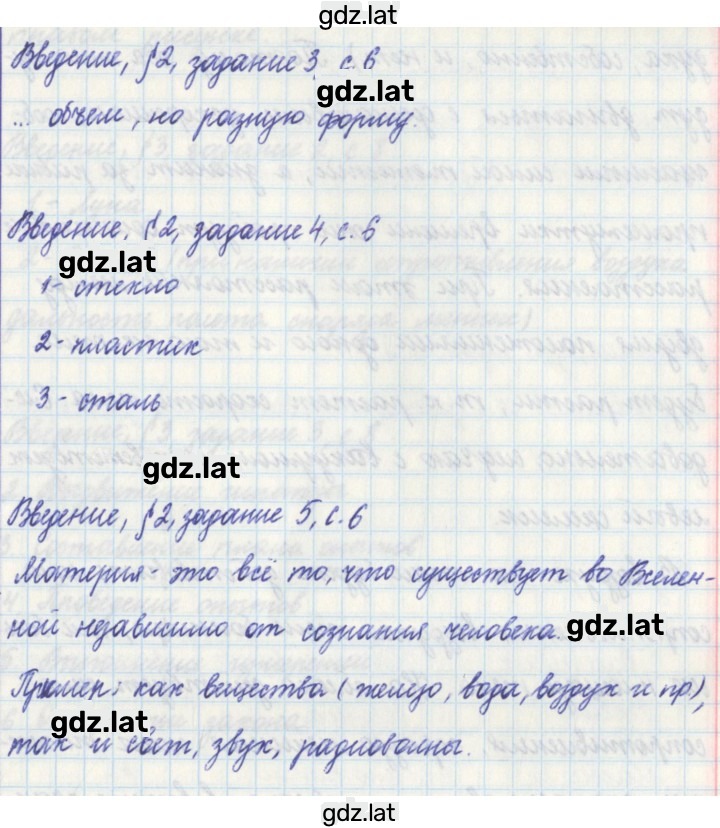 gdz.lat
Введение, §2, задание 3, с.6
gdz.lat
... объем, но разную форму.
Введение, §2, задание 4, с.6
gdz.lat
1- стекло
2- пластик
3- сталь
gdz.lat
Введение, §2, задание 5, с.6
Материя - это всё то, что существует во Вселен-
ной независимо от сознания человека.
gdz.lat
Пример: как вещества (железо, вода, воздух и пр.),
gdz.lat
так и свет, звук, радиоволны.
gdz.lat